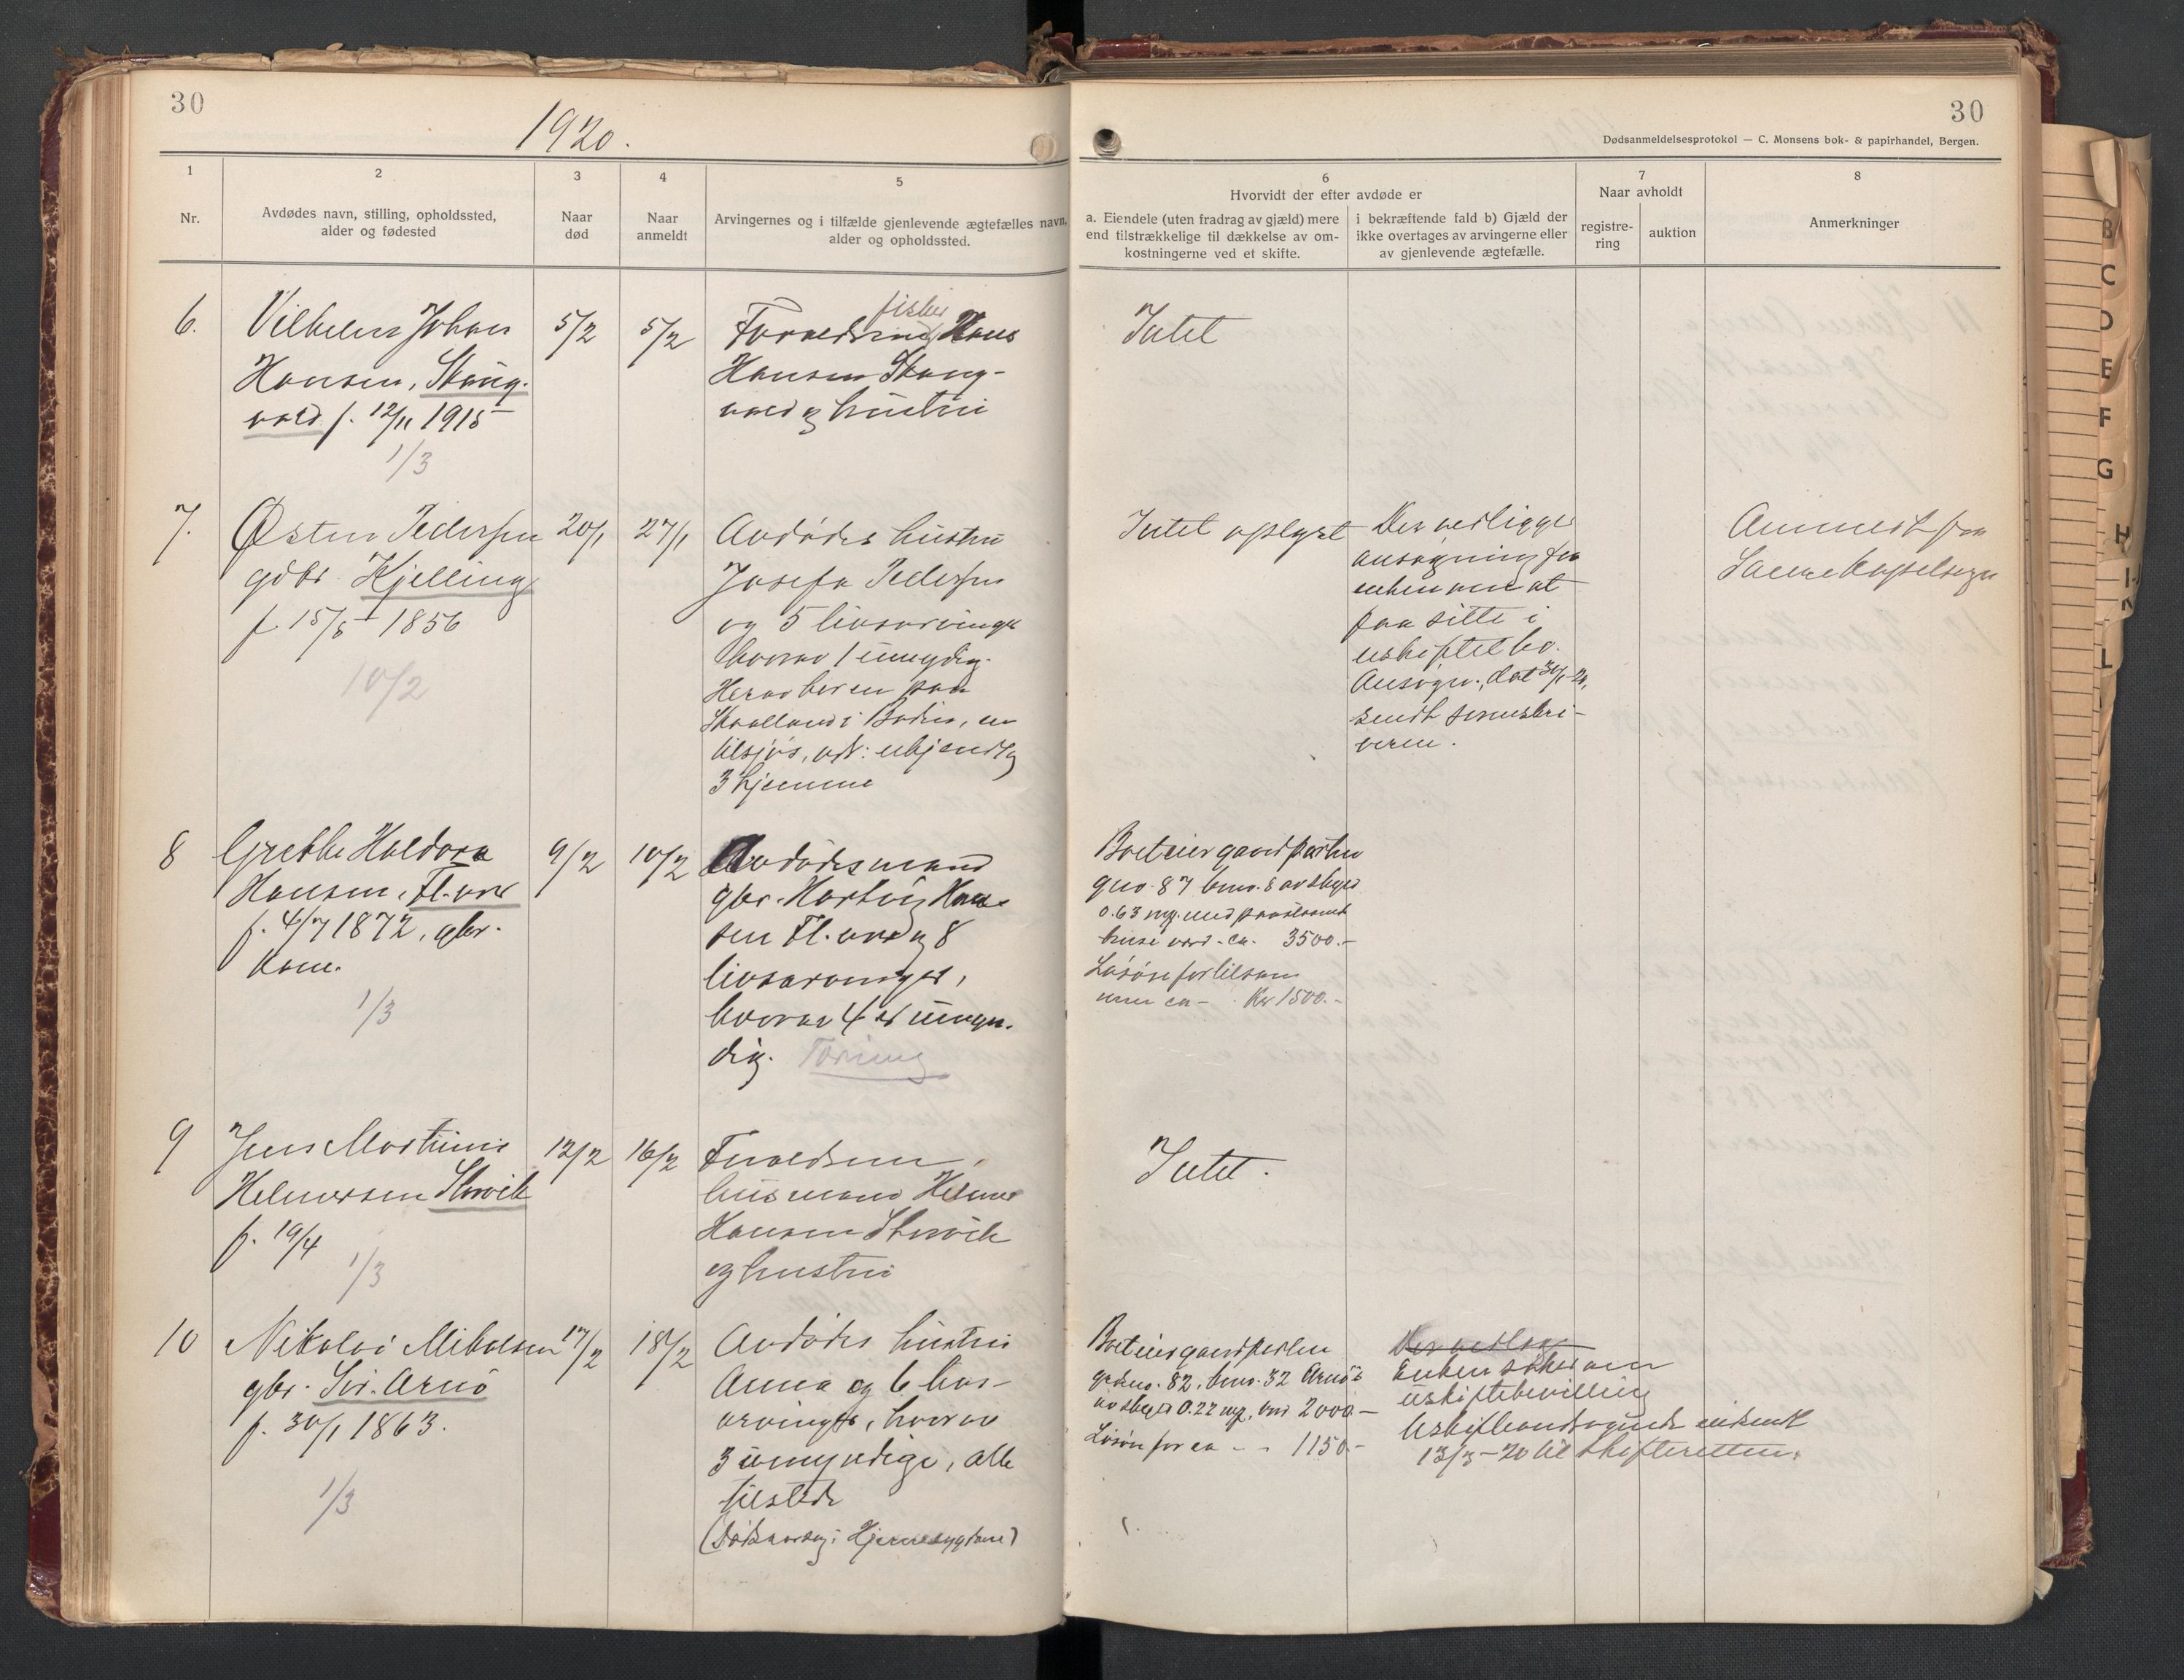 30
1920.
30
Dødsanmeldelsesprotokol — C. Monsens bok- & papirhandel, Bergen.
1
Nr.
2
Avdødes navn, stilling, opholdssted,
alder og fødested
3
Naar
død
4
Naar
anmeldt
5
Arvingernes og i tilfælde gjenlevende ægtefælles navn,
alder og opholdssted.
6
Hvorvidt der efter avdøde er
a. Eiendele (uten fradrag av gjæld) mere
end tilstrækkelige til dækkelse av om-
kostningerne ved et skifte.
i bekræftende fald b) Gjæld der
ikke overtages av arvingerne eller
av gjenlevende ægtefælle.
7
Naar avholdt
registre-
ring
auktion
8
Anmerkninger
6.
Vilhelm Johan
Hansen, Skaug-
vold f. 12/11 1915
1/3
5/2
5/2
fisker
Forældrene Hans
Hansen Skaug-
vold og hustru
Intet
7.
Østen Pedersen
gdbr. Kjelling
f. 15/5 1856
10/2
20/1
27/1
Avdødes hustru
Josefa Pedersen
og 5 livsarvinger
hvorav 1 umyndig.
Herav bor en paa
i Bodin, en
tilsjøs, adr: ukjendt og
3 hjemme
Intet oplyst
Der vedligger
ansøgning fra
enken om at
faa sitte i
uskiftet bo.
Ansøgn. dat 30/1-20,
sendt sorenskri-
veren.
Anmeldt fra
8
Grethe Haldora
Hansen, Fl. vær
f. 4/7 1872, gbr.
kone.
1/3
9/2
10/2
Avdødes mand
gbr. Hartvig Han-
sen Fl. vær og 8
livsarvinger,
hvorav 4 er umyn-
dig.
Boet eier gaardparten
gno. 87 bno. 8 av skyld
0.63 mrk. med paastaaende
huse værd ca. 3500.-
Løsøre for tilsam
men ca - Kr 1500.-
9
Jens Martinus
Helmersen Storvik
f. 19/4
1/3
12/2
16/2
Forældrene,
husmand Helmer
Hansen Storvik
og hustru
Intet.
10
Nikolai Mikalsen
gbr. Sør. Arnø
f. 30/1 1863.
1/3
17/2
18/2
Avdødes hustru
Anna og 6 livs-
arvinger, hvorav
3 umyndige, alle
tilstede
(Dødsaarsag: Hjernesygdom)
Boet eier gaardparten
gardsno. 82, bno. 32 Arnø
av skyld 0.22 mrk, værd 2000.-
Løsøre for ca - - 1150.-
Enken søker om
uskiftebevilling
Uskifteandragende indsendt
13/3-20 til skifteretten.
B
C
D
E
F
G
H
I-J
K
L